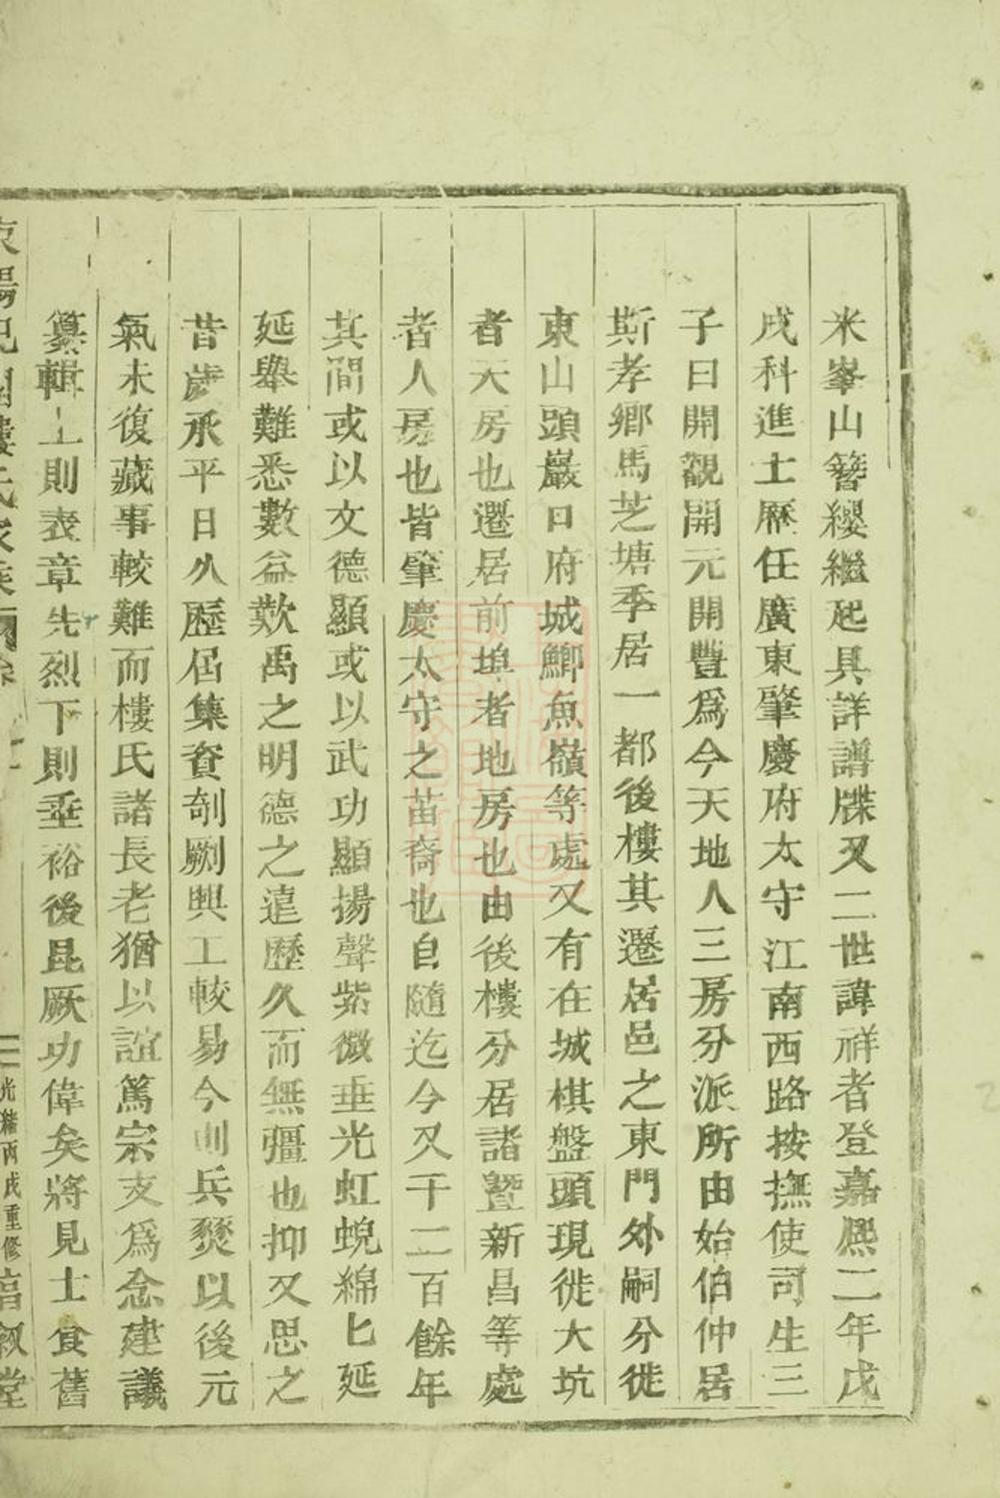 米峯山簪纓繼起具詳譜牒又二世諱祥者登嘉熙二年戊
戌科進士歷任廣東肇慶府太守江南西路按撫使司生三
子曰開觀開元開豐爲今天地人三房分派所由始伯仲居
斯孝鄉馬芝塘季居一都後樓其遷居邑之東門外嗣分徙
東山頭巖口府城鯽魚嶺等處又有在城棋盤頭現徙大坑
者天房也遷居前埠者地房也由後樓分居諸暨新昌等處
者人房也皆肇慶太守之苗裔也自隨迄今又千二百餘年
其間或以文德顯或以武功顯揚聲紫微垂光虹蜺綿匕延
延舉難悉數益歎禹之明德之遠歷久而無彊也抑又思之
昔歲承平日久歷屆集資剞劂興工較易今則兵燹以後元
氣未復藏事較難而樓氏諸長老猶以誼篤宗支爲念建議
纂輯上則表章先烈下則垂裕後昆厥功偉矣將見士食舊
光緒丙戌重修